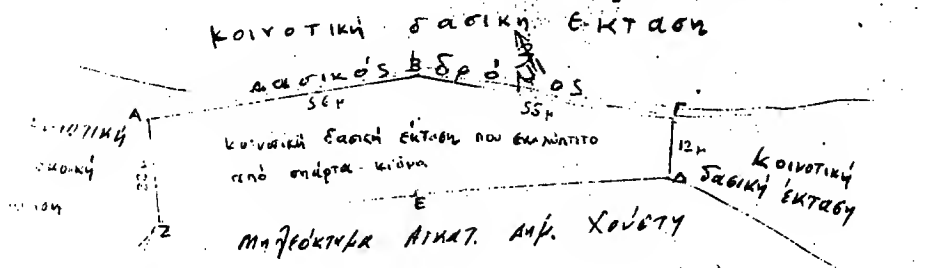 κοινοτική δασική έκταση
Δασικός δρόμος
Α 56μ Β 55μ Γ
κοινοτική δασική έκταση που εκαλύπτετο
από σπάρτα - 
12μ
κοινοτική
δασική έκταση
Δ
Ε
Ζ
Μηλεόκτημα Αικατ. Δημ. Χούστη